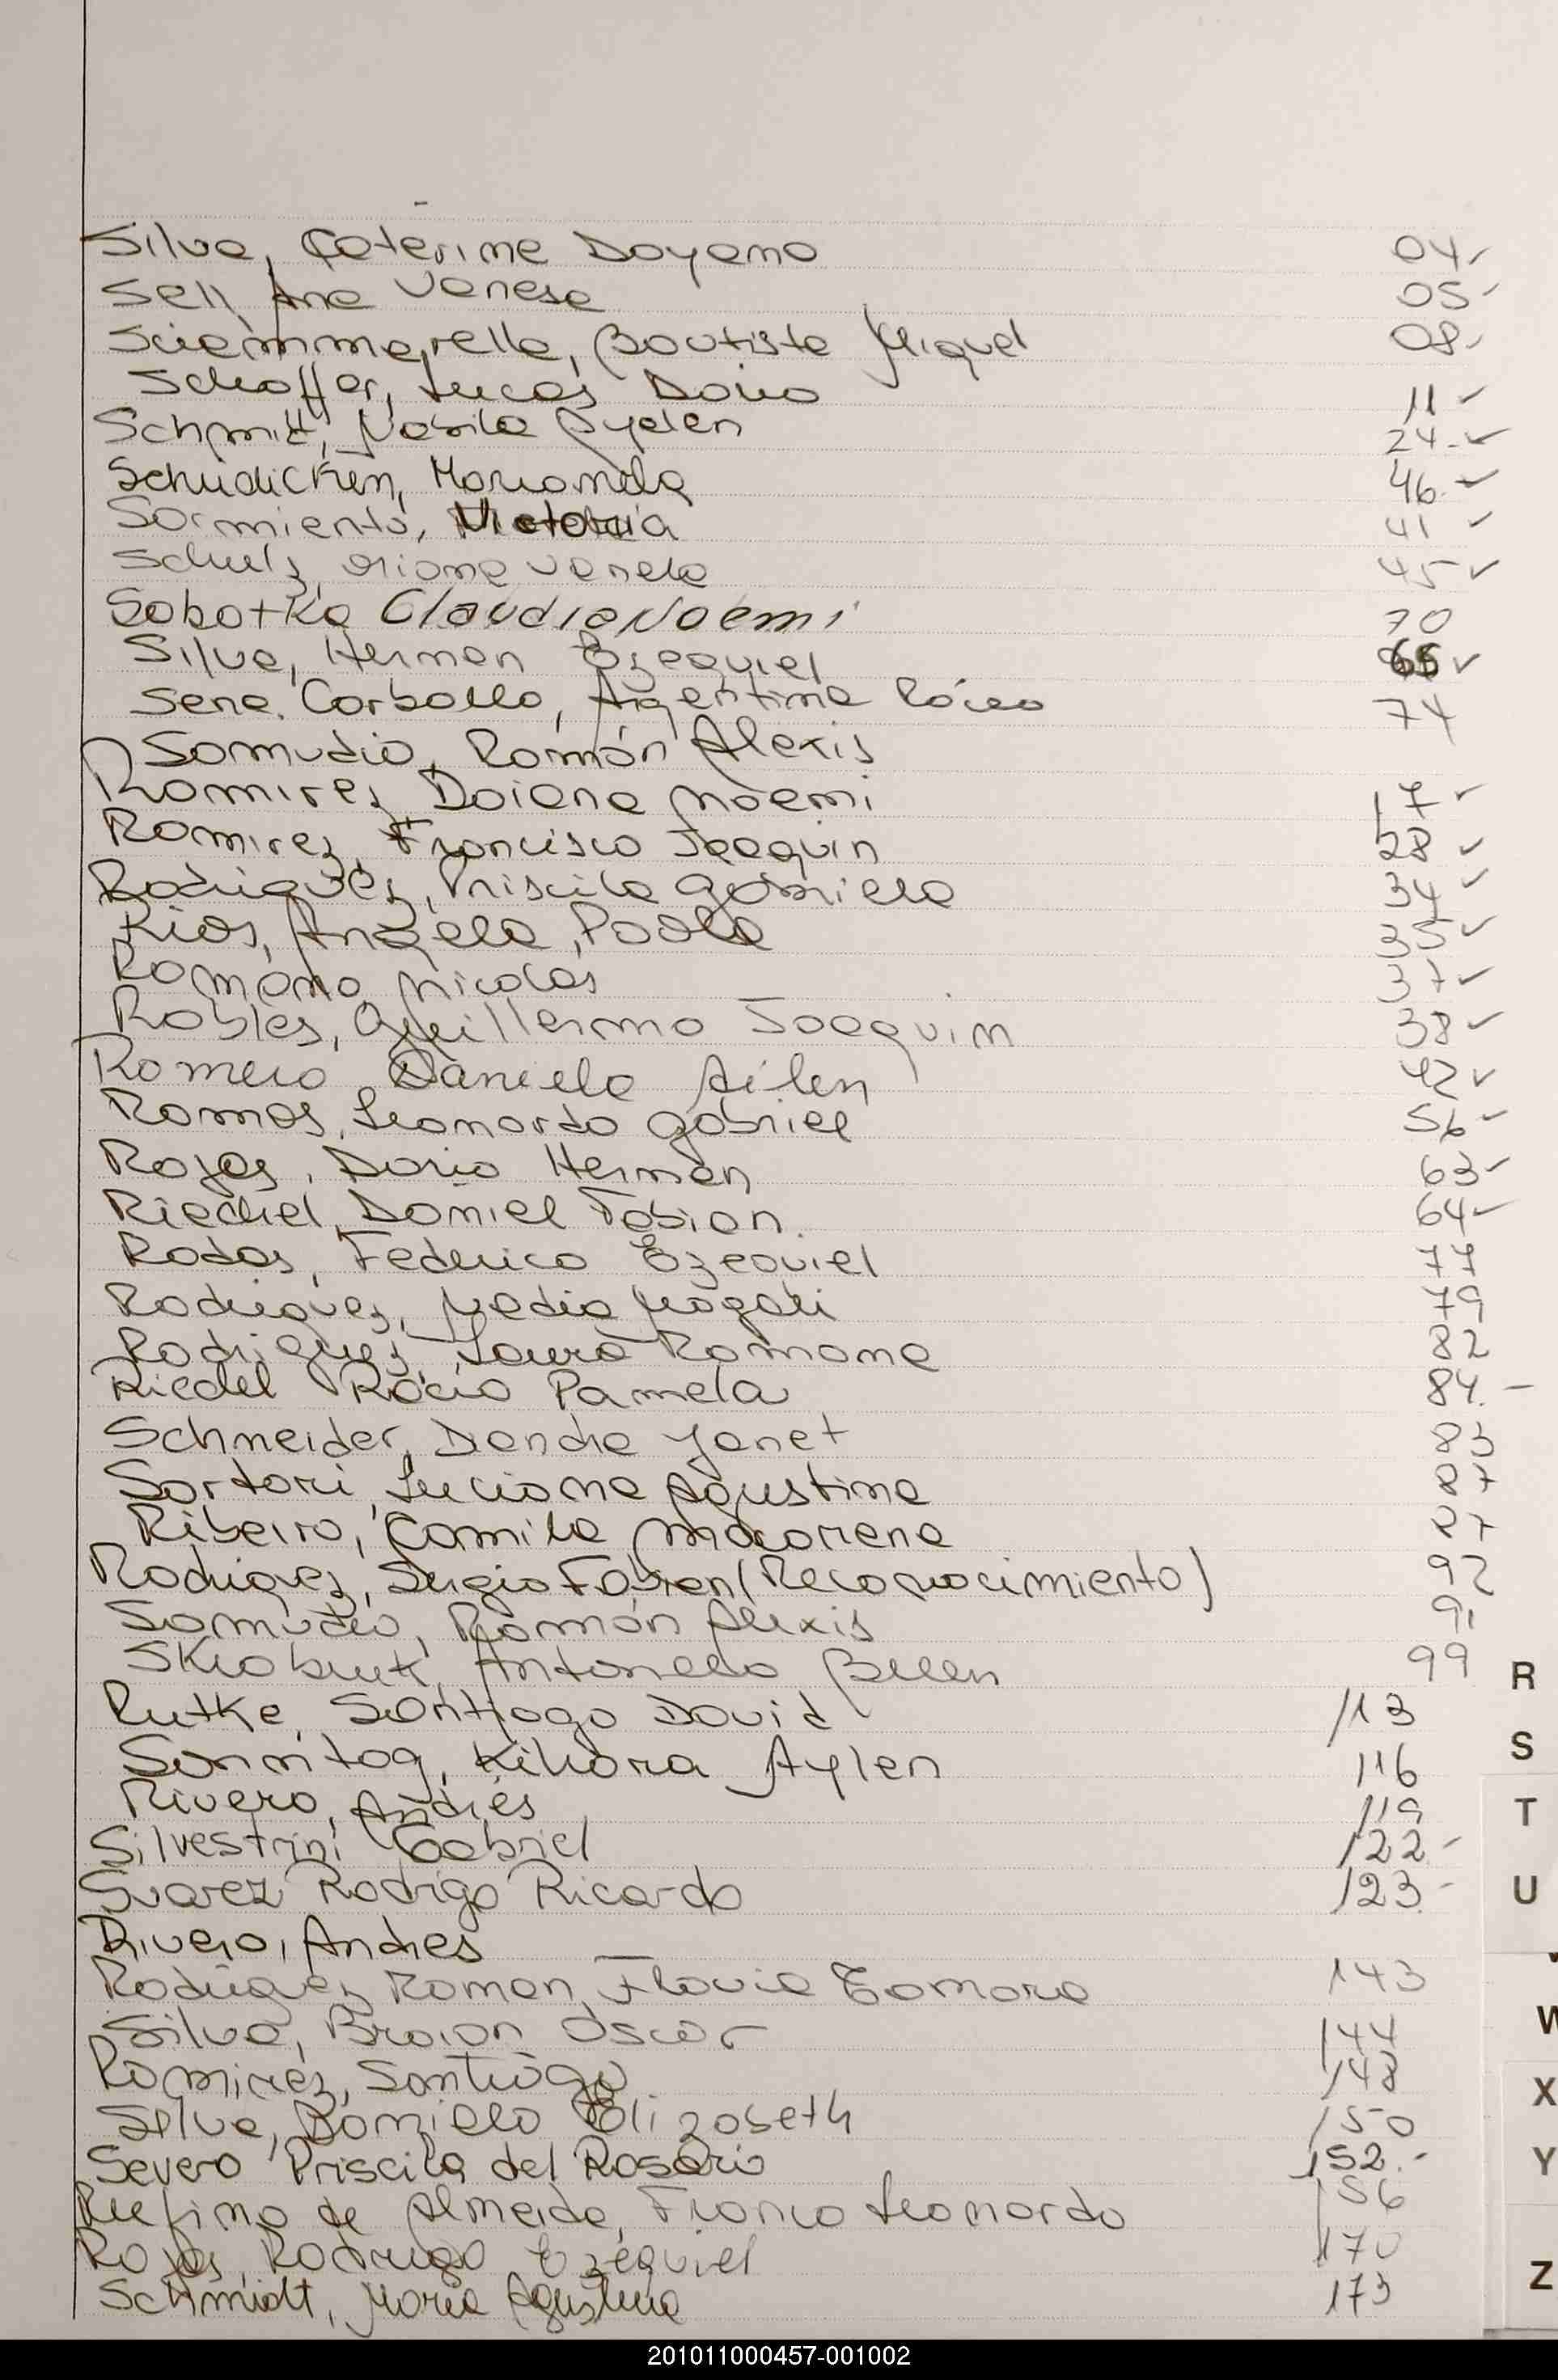 Silva, Caterine Dayana 04
Sell, Ana Vanesa 05
Sciammarella, Bautista Miguel 08
Schoffer, Lucas Dario 11
Schmitt, Nabila Ayelen 24
Schudicken, Marianela 46
Sarmiento, Victoria 41
Schulz, Oriana Vanela 45
Sobotka Claudia Noemi 70
Silva, Hernan Ezequiel 65
Sena Carballo, Argentina Rócio 74
Samudio, Ramón Alexis
Ramirez Daiana Noemi 17
Ramirez, Francisco Joaquin 28
Rodriguez, Priscila Gabriela 34
Rios, Angela, Paola 35
Romano Nicolas 37
Robles, Guillermo Joaquin 38
Romero Daniela Ailen 42
Ramos, Leonardo Gabriel 56
Rojas, Dario Hernan 63
Riediel, Daniel Fabian 64
Rodas, Federico Ezequiel 77
Rodriguez, Nadia Magali 79
Rodriguez, Laura Romana 82
Riedel Rocio Pamela 84.
Schneider, Diandra Yanet 83
Sartori, Luciana Agustina 87
Ribeiro, Camila Macarena 87
Rodriguez, Sergio Fabian (Reconocimiento) 92
Samudio, Ramón Alexis 91
Skrabiuk, Antonella Belen 99
Rutke, Santiago David 113
Sonntag, Kihara Aylen 116
Rivero, Andrés 119
Silvestrini Gabriel 122
Suarez Rodrigo Ricardo 123
Rivero, Andres
Rodriguez Roman, Flavia Tamara 143
Silva, Braian Oscar 144
Ramirez, Santiago 148
Silva, Daniela Elizabeth 150
Severo Priscila del Rosario 152.
Rufino de Almeida, Franco Leonardo 156
Rojas, Rodrigo Ezequiel 170
Schmidt, Maria Agustina 173
R
S
T
U
W
X
Y
Z
201011000457-001002